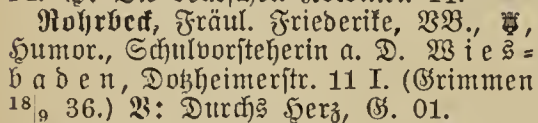 Rohrbeck, Fräul. Friederike, VB., 
Humor., Schulvorsteherin a. D. Wies=
baden, Dotzheimerstr. 11 I. (Grimmen
18|9 36.) V: Durchs Herz, G. 01.